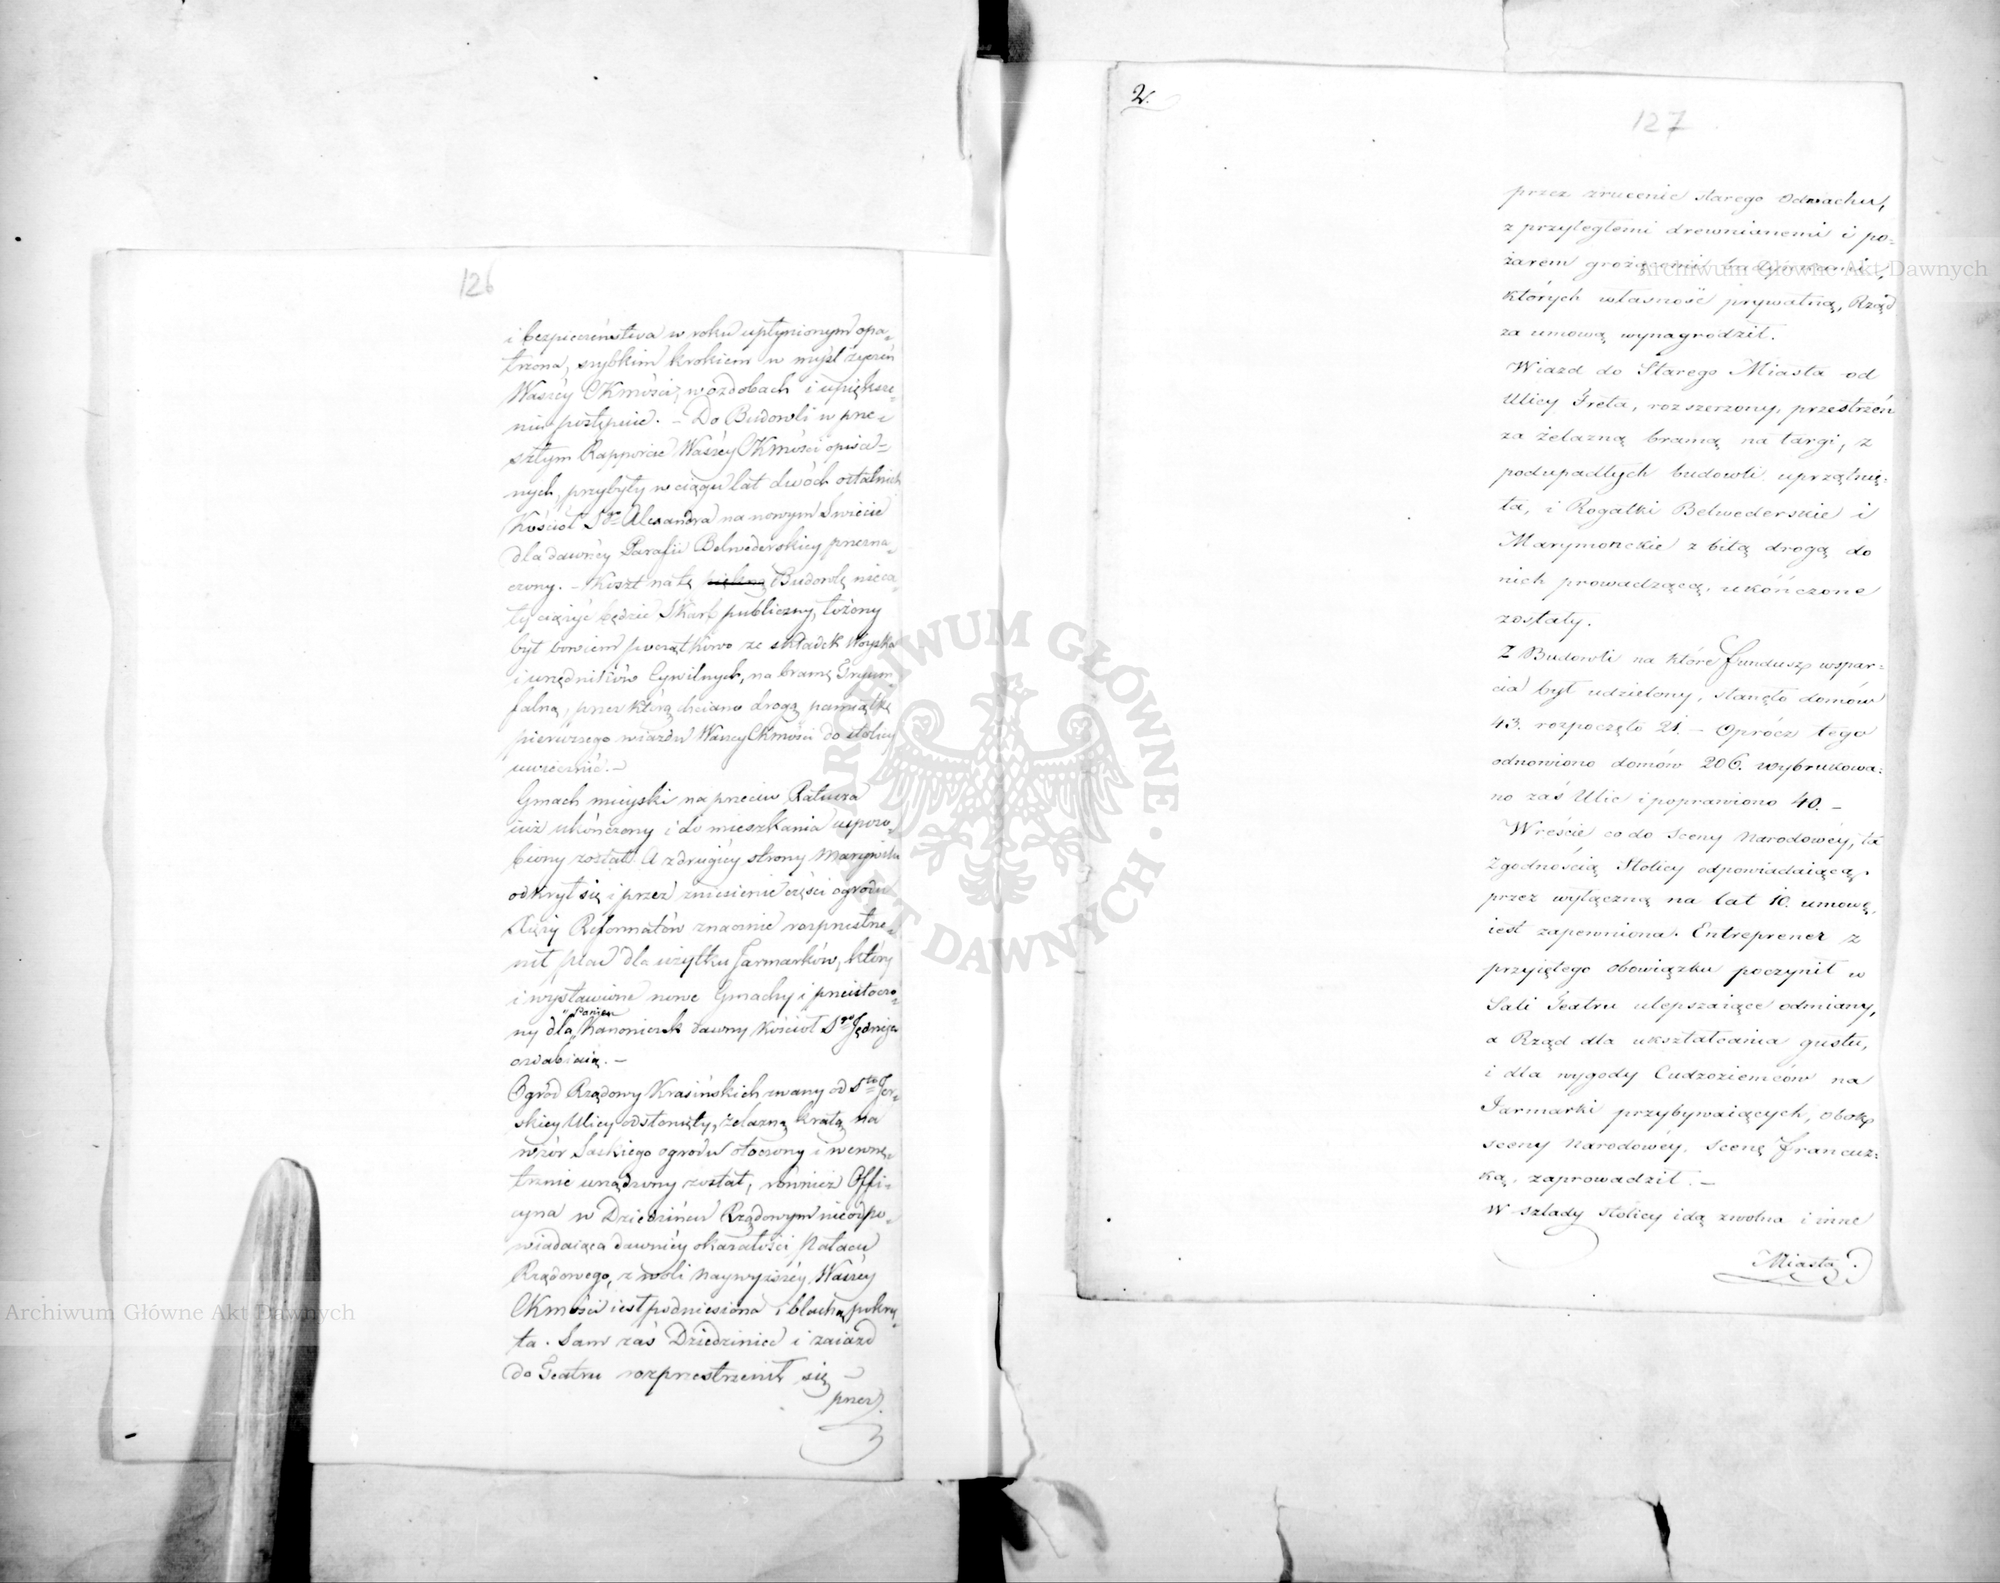 126
i bezpieczeństwa w roku upłynionym opa-
trzona, szybkim krokiem w myśl życzeń
Waszéy CKmości, w ozdobach i upiększe-
niu postępuie. – Do Budowli w prze-
szłym Rapporcie Waszéy CKmości opisa-
nych, przybyły w ciągu lat dwóch ostatnich
Kościoł Sgo Alexandra na nowym Świecie
dla dawnéy Parafii Belwederskiey przezna-
czony. – Koszt na tę piękną Budowlę nieca-
ły ciążyć będzie Skarb publiczny, łożony
był bowiem początkowo ze składek Woyska
i urzędników Cywilnych, na bramę Tryum-
falną, przez którą chciano drogą pamiątkę
pierwszego wiazdu Waszey CKmości do stolicy
uwiecznić. –
Gmach mieyski naprzeciw Ratusza
iuż ukończony i do mieszkania usposo-
biony został. A z drugiéy strony Marywilu
odkrył się i przez zniesienie części ogrodu
Xięży Reformatów znacznie rozprzestrze-
nił plac dla użytku Jarmarków, który
i wystawione nowe Gmachy i przeistoczo-
ny dla Panien Kanoniczek dawny Kościoł Sgo Jędrzeia
ozdabiaią. –
Ogród Rządowy Krasińskich zwany od Sto Jer-
skiey Ulicy odsłonięty, żelazną kratą na
wzór Saskiego ogrodu otoczony i wewnę-
trznie urządzony został, również Offi-
cyna w Dziedzińcu Rządowym nieodpo-
wiadaiąca dawnéy okazałości Pałacu
Rządowego, z woli Naywyższéy Waszéy
CKmości iest podniesiona i blachą pokry-
ta. Sam zaś Dziedziniec i zaiazd
do Teatru rozprzestrzenił się –
przez
2.
127
przez zrucenie starego Odwachu,
z przyległemi drewnianemi i po-
żarem grożącemi budynkami,
których własność prywatną, Rząd
za umową wynagrodził.
Wiazd do Starego Miasta od
Ulicy Freta, rozszerzony, przestrzeń
za żelazną bramą na targi, z
podupadłych budowli uprzątnię-
ta, i Rogatki Belwederskie i
Marymonckie z bitą drogą do
nich prowadzącą, ukończone
zostały.
Z Budowli na które fundusz wspar-
cia był udzielony, stanęło domów
43. rozpoczęto 21. – Oprócz tego
odnowiono domów 206. wybrukowa-
no zaś Ulic i poprawiono 40. –
Wreście co do Sceny Narodowéy, ta
z godnością Stolicy odpowiadaiącą,
przez wyłączną na lat 10. umowę,
iest zapewniona. Entreprener z
przyiętego obowiązku poczynił w
Sali Teatru ulepszaiące odmiany,
a Rząd dla ukształcania gustu,
i dla wygody Cudzoziemców na
Jarmarki przybywaiących, obok
sceny Narodowéy, Scenę francuz-
ką, zaprowadził. –
W szlady stolicy idą zwolna i inne
Miasta.
Archiwum Główne Akt Dawnych
Archiwum Główne Akt Dawnych
ARCHIWUM GŁÓWNE AKT DAWNYCH